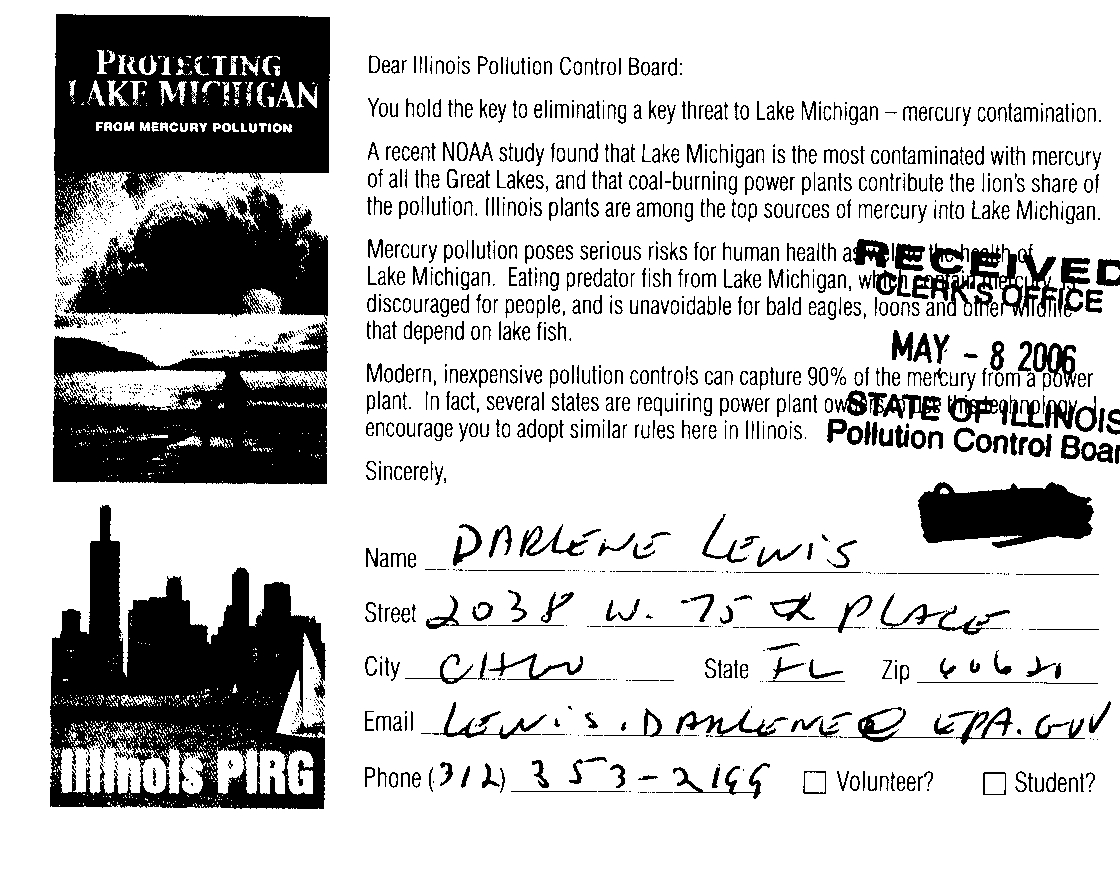 PROTECTING
LAKE MICHIGAN
FROM MERCURY POLLUTION
Illinois PIRG
Dear Illinois Pollution Control Board:
You hold the key to eliminating a key threat to Lake Michigan – mercury contamination.
A recent NOAA study found that Lake Michigan is the most contaminated with mercury
of all the Great Lakes, and that coal-burning power plants contribute the lion's share of
the pollution. Illinois plants are among the top sources of mercury into Lake Michigan.
Mercury pollution poses serious risks for human health as well as the health of
Lake Michigan. Eating predator fish from Lake Michigan, which contain mercury, is
discouraged for people, and is unavoidable for bald eagles, loons and other wildlife
that depend on lake fish.
Modern, inexpensive pollution controls can capture 90% of the mercury from a power
plant. In fact, several states are requiring power plant owners to use this technology. I
encourage you to adopt similar rules here in Illinois.
RECEIVED
CLERK'S OFFICE
MAY - 8 2006
STATE OF ILLINOIS
Pollution Control Boar
Sincerely,
Name DARLENE LEWIS
Street 2038 W. 75 PLACE
City State Zip
Email LEWIS.DARLENE@EPA.GOV
Phone (312) 353-2199 Volunteer? Student?